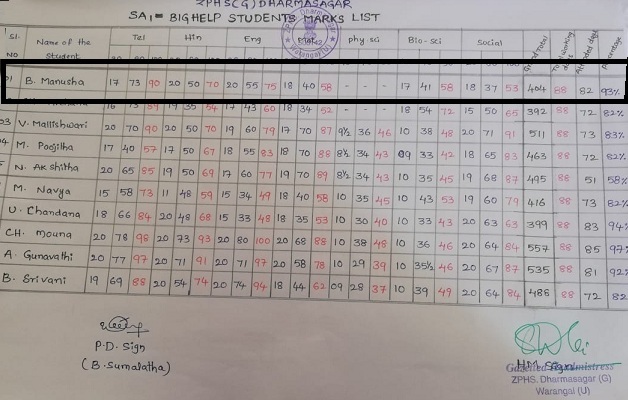 ZPHSC(G) DHARMASAGAR
SA1 = BIGHELP STUDENTS MARKS LIST
Sl. NO Name of the Student Tel Hin Eng Maths phy.sci Bio-sci Social Grand Total Total working days Attended days Percentage
01 B. Manusha 17 73 90 20 50 70 20 55 75 18 40 58 - - - 17 41 58 18 37 53 404 88 82 93%
16 73 89 19 35 54 17 43 60 18 34 52 - - - 18 54 72 15 50 65 392 88 72 82%
03 V. Mallishwari 20 70 90 20 50 70 19 60 79 17 70 87 9½ 36 46 10 38 48 20 71 91 511 88 73 83%
04 M. Poojitha 17 40 57 17 50 67 18 55 83 18 70 88 8½ 34 43 09 33 42 18 65 83 463 88 72 82%
N. Akshitha 20 65 85 19 50 69 17 60 77 19 70 89 8½ 34 43 10 35 45 19 68 87 495 88 51 58%
M. Navya 15 58 73 11 48 59 15 34 49 18 40 58 10 35 45 10 43 53 19 60 79 416 88 73 82%
U. Chandana 18 66 84 20 48 68 15 33 48 18 35 53 10 30 40 10 33 43 20 63 63 399 88 83 94%
CH. Mouna 20 78 98 20 73 93 20 80 100 20 68 88 10 38 48 10 36 46 20 64 84 557 88 85 97%
A. Gunavathi 20 77 97 20 71 91 20 71 97 20 58 78 10 29 39 10 35½ 46 20 67 87 535 88 81 92%
B. Srivani 19 69 88 20 54 74 20 74 94 18 44 62 09 28 37 10 39 49 20 64 84 488 88 72 82
P.D. Sign
(B. Sumalatha)
HM Sign
Gazetted Headmistress
ZPHS. Dharmasagar (G)
Warangal (U)